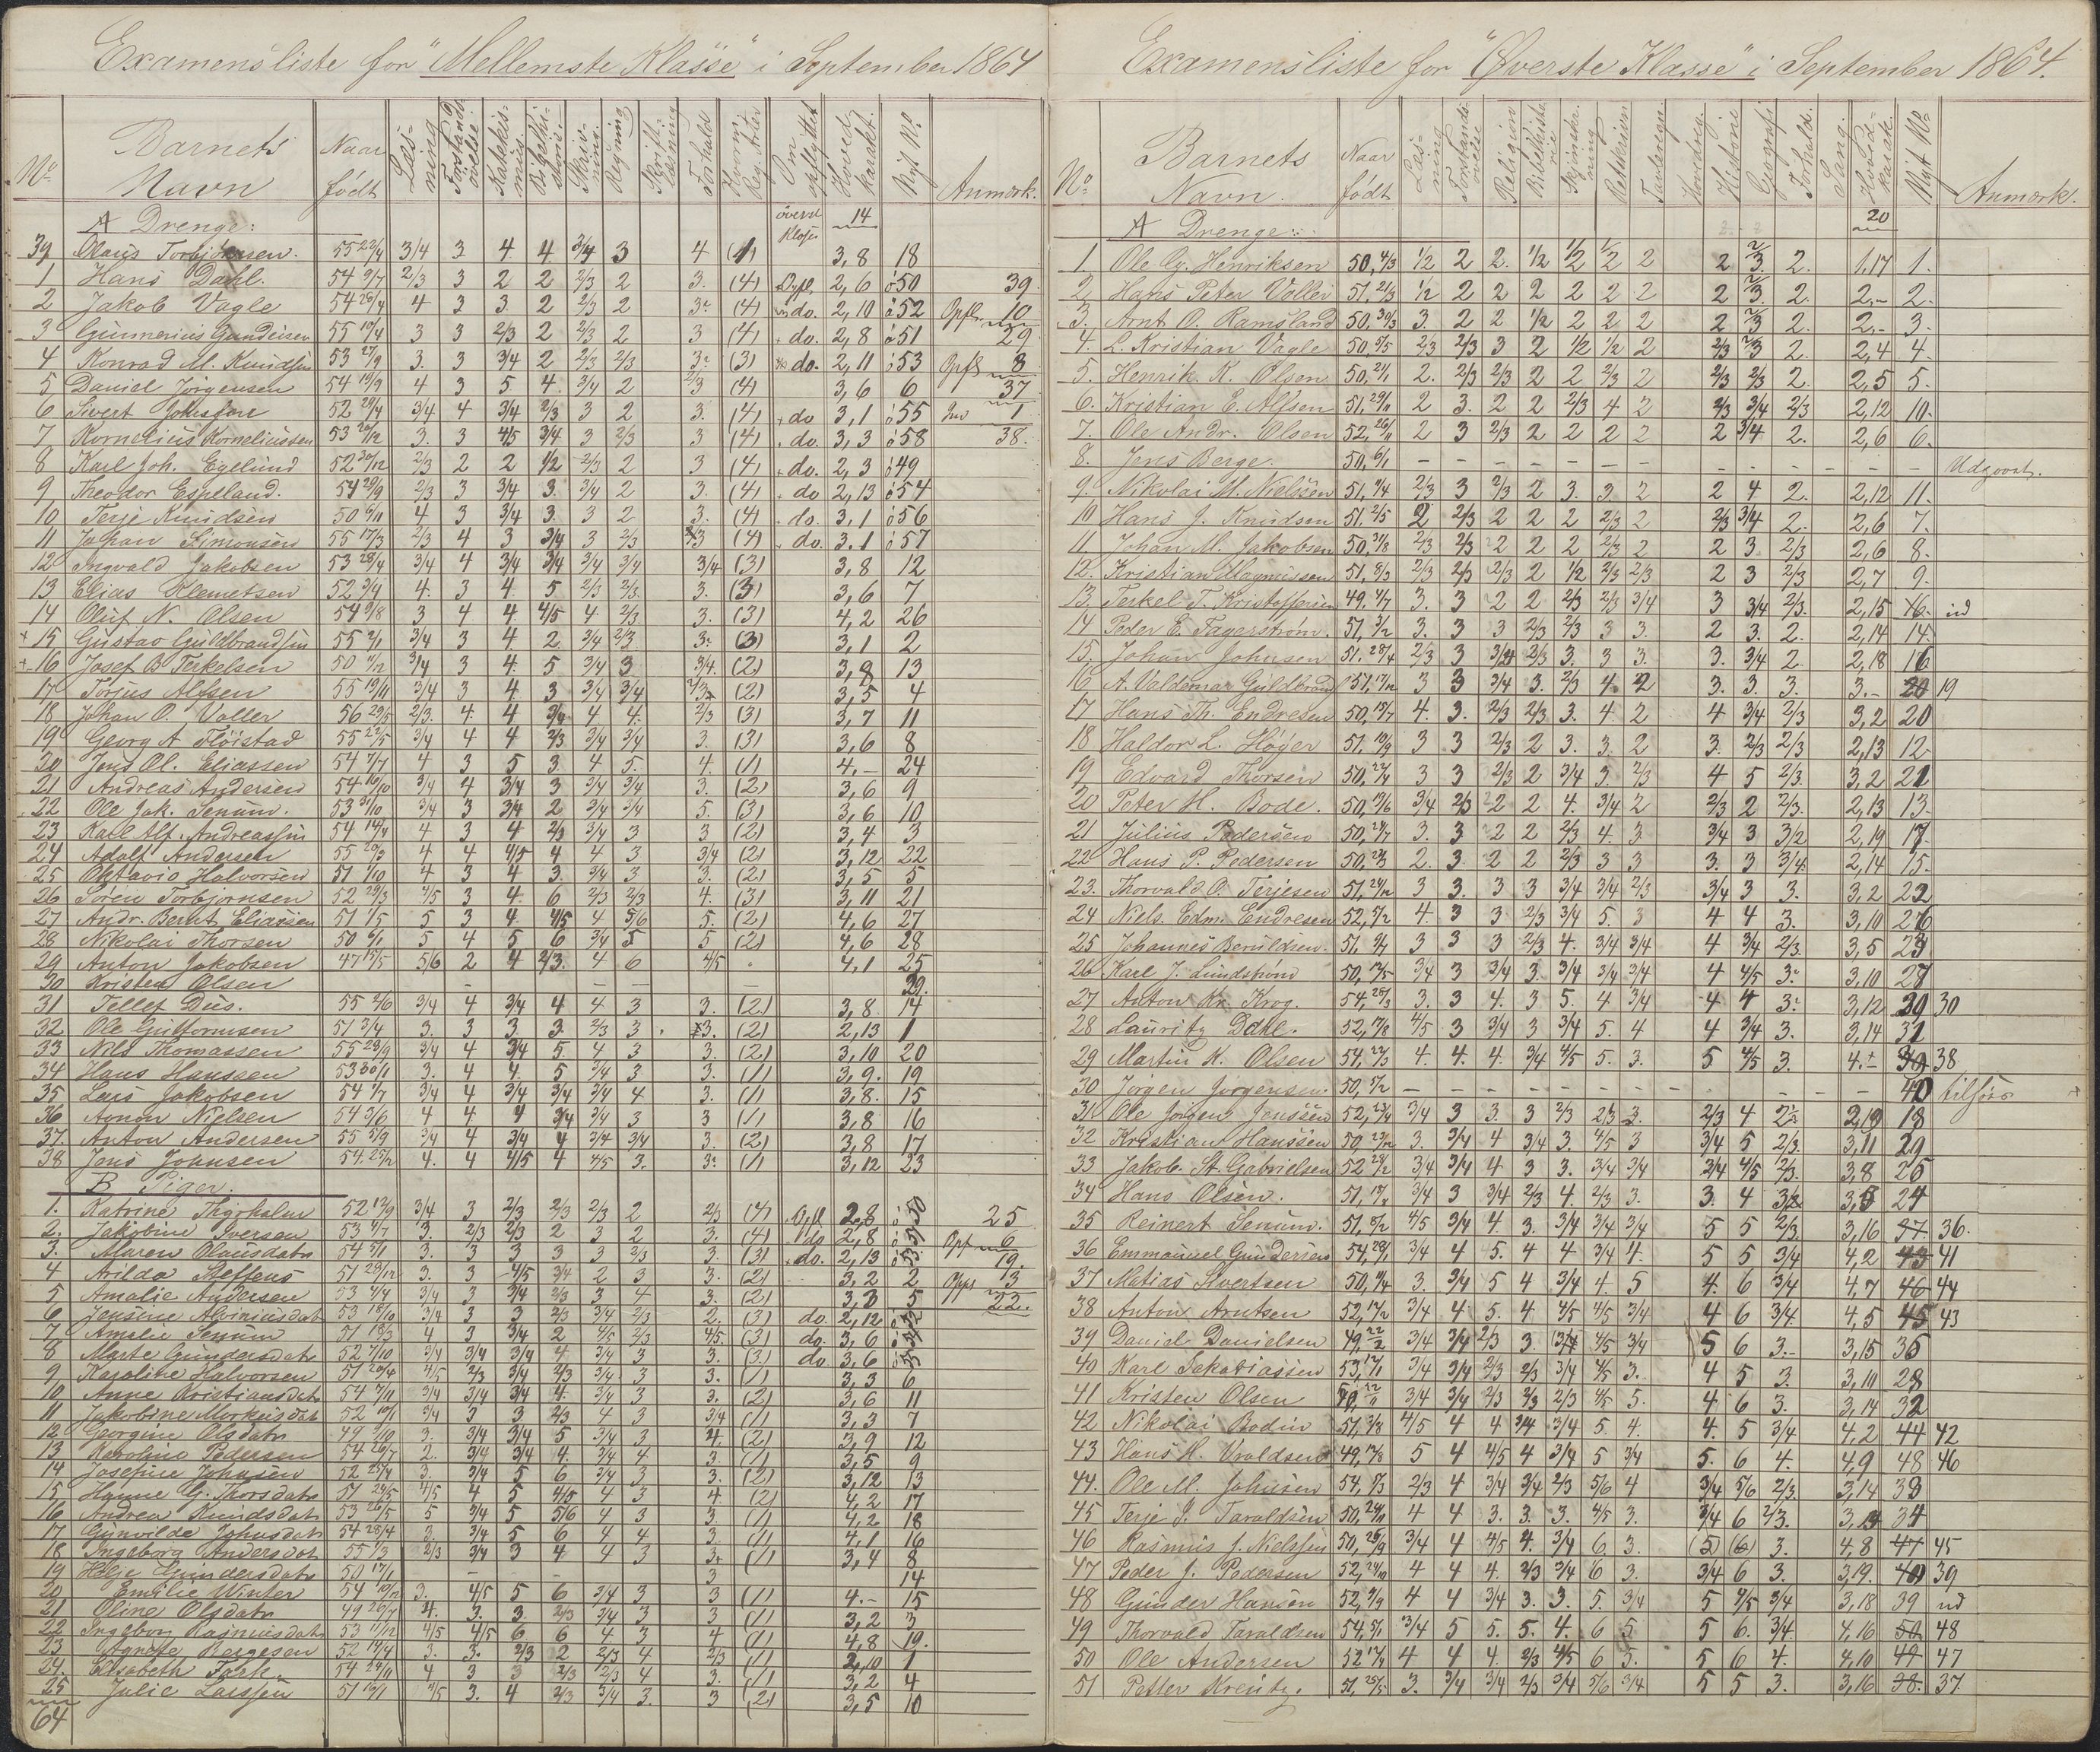 Examensliste for "Mellemste Klasse" i September 1864
No. Barnets Navn Naar født Læsning Forstands øvelse Katekismus Regning Om opflyttet Hoved karakt. Nyt No. Anmærk.
A Drenge: øverst Klasse 14
39 Olaus Torbjørnsen. 55 3/4 3 4 4 3/4 3 4 (1) 3,8 18
1 Hans Dahl. 54 9/7 2/3 3 2 2 2/3 2 3. (4) Opfl. 2,6 50 39
2 Jakob Vagle 54 4 3 3 2 2/3 2 3 (4) do. 2,10 52 Opfl. 10
3 Gunnerius Gundersen 55 3 3 2/3 2 2/3 2 3 (4) do. 2,8 51 29
4 Konrad M. Knudsen 53 27/9 3. 3 3/4 2 2/3 2/3 3 (3) do. 2,11 53 Opfl 8
5 Daniel Jörgensen 54 19/9 4 3 5 4 3/4 2 2/3 (4) 3,6 6 37
6 Sivert Johnsen 52 29/4 3/4 4 3/4 2/3 3 2 3. (4) do 3,1 55 1
7 Kornelius Korneliussen 53 3. 3 4/5 3/4 3 2/3 3 (4) do. 3,3 58 38.
8 Karl Joh. Egelund 52 30/12 2/3 2 2 1/2 2/3 2 3 (4) do. 2,3 49
9 Theodor Espeland. 54 29/9 2/3 3 3/4 3. 3/4 2 3. (4) do 2,13 54
10 Terje Knudsen 50 6/11 4 3 3/4 3. 3 2 3. (4) do. 3,1 56
11 Johan Simonsen 55 17/3 2/3 4 3 3/4 3 2/3 3 (4) do. 3.1 57
12 Ingvald Jakobsen 53 28/4 3/4 4 3/4 3/4 3/4 3/4 3/4 (3) 3,8 12
13 Elias Klemetsen 52 3/4 4. 3 4 5 2/3 2/3 3. (3) 3,6 7
14 Oluf N. Olsen 54 9/8 3 4 4 4/5 4 2/3 3. (3) 4,2 26
15 Gustav Guldbrandsen 55 2/1 3/4 3 4 2 3/4 2/3 3. (3) 3,1 2
16 Josef B Terkelsen 50 3/4 3 4. 5 3/4 3 3/4. (2) 3,8 13
17 Torjus Alfsen 55 19/11 3/4 3 4 3 3/4 3/4 (2) 3,5 4
18 Johan O. Voller 56 29/5 2/3. 4. 4 3/4 4 4. 2/3 (3) 3,7 11
19 Georg A Fløistad 55 3/4 4 4 2/3 3/4 3/4 3. (3) 3,6 8
20 Jens Ol. Eliassen 54 7/7 4 3 5 3. 4 5. 4. (1) 4,- 24
21 Andreas Andersen 54 16/10 3/4 4 3/4 3 3/4 3/4 3. (2) 3,6 9
22 Ole Jak. Senum. 53 3/4 3 3/4 2 3/4 3/4 5. (3) 3,6 10
23 Karl Alf. Andreassen 54 14/4 4 3 4 2/3 3/4 3 3 (2) 3,4 3
24 Adolf Andersen 55 20/3 4 4 4/5 4 4 3 3/4 (2) 3,12 22
25 Oktavio Halvorsen 51 1/10 4 3 4 3. 3/4 3 3. (2) 3,5 5
26 Søren Torbjørnsen 52 29/3 4/5 3 4. 6 2/3 2/3 4. (3) 3,11 21
27 Andr. Bernt Eliassen 51 1/5 5 3 4 4/5 4 5/6 5. (2) 4,6 27
28 Nikolai Thorsen 50 6/1 5 4 5 6 3/4 5 5 (2) 4,6 28
29 Anton Jakobsen 47 15/5 5/6 2 4 2/3. 4 6 4/5 4,1 25
30 Kristen Olsen 29.
31 Tellef Dus. 55 3/4 4 3/4 4 4 3 3. (2) 3,8 14
32 Ole Guttormsen 51 3/4 3. 3 3 3 2/3 3 3. (2) 2,13 1
33 Nils Thomassen 55 28/9 3/4 4 3/4 5. 4 3 3. (2) 3,10 20
34 Hans Hansen 53 30/1 3. 4 4. 5 3/4 3 3. (1) 3,9. 19
35 Lars Jakobsen 54 7/7 3/4 4 3/4 3/4 3/4 4 3. (1) 3,8. 15
36 Aanon Nielsen 54 3/6 4 4 4 3/4 3/4 3 3 (1) 3,8 16
37. Anton Andersen 55 5/9 3/4 4 3/4 4 3/4 3/4 3. (2) 3,8 17
38 Jens Johnsen 54 25/2 4. 4 4/5 4 4/5 3. 3. (1) 3,12 23
B Piger.
1. Katrine Thyrholm 52 12/9 3/4 3 2/3 2/3 2/3 2 2/3 (4) Opfl. 2,8 25
2. Jakobine Iversen 53 4/7 3. 2/3 2/3 2 3 2 3. (4) do 2,8 Opf 6
3. Maren Olausdatr 54 5/1 3. 3 3 3 3 2/3 3. (3) do. 2,13 19.
4 Arilda Steffens 51 29/12 3. 3 4/5 3/4 2 3 3. (2) 3,2 2 Opfl 3
5 Amalie Andersen 53 4/4 3/4 3 3/4 2/3 3 4 3. (2) 3,3 5 22.
6 Jensine Alviniusdatr 53 18/10 3/4 3 3 2/3 3/4 2/3 2. (3) do. 2,12
7 Amalie Senum 51 4 3 3/4 2 4/5 2/3 4/5. (3) do 3,6
8 Marte Gundersdatr 52 7/10 3/4 3/4 3/4 4 3/4 3 3. (3) do 3,6
9 Karoline Halvorsen 51 20/4 4/5 2/3 3/4 2/3 3/4 3 3. (1) 3,3 6
10 Anne Kristiansdatr 54 7/11 3/4 3/4 3/4 4. 3/4 3 3. (2) 3,6 11
11 Jakobine Markusdatr 52 10/1 3/4 3 3 2/3 4 3 3/4 (1) 3,3 7
12 Georgine Olsdatr 49 3/10 3. 3/4 3/4 5 3/4 3 4. (2) 3,9 12
13 Karoline Pedersen 54 26/7 2. 3/4 3/4 4. 3/4 4. 3. (1) 3,5 9
14 Josefine Johnsen 52 25/4 3. 3/4 5 6 3/4 3 3. (2) 3,12 13
15 Hanne G. Thorsdatr 51 29/5 4/5 4 5 4/5 4 3 4. (2) 4,2 17
16 Andrea Knudsdatr 53 26/5 5 3/4 5 5/6 4 3 3. (1) 4,2 18
17 Gunvilde Johnsdatr 54 28/4 3. 3/4 5 6 4 4 3. (1) 4,1 16
18 Ingeborg Andersdatr 55 1/3 2/3 3/4 3 4 4 3 3. (1) 3,4 8
19 Helje Gundersdatr 50 17/1 3 14
20 Emilie Winter 54 10/12 3. 4/5 5 6 3/4 3 3 (1) 4.- 15
21 Oline Olsdatr 49 26/7 4. 3. 3. 2/3 3/4 3 3 (1) 3,2 3
22 Ingeborg Rasmusdatr 53 11/12 4/5 4/5 6 6 4 3 4 (1) 4,8 19.
23 Agnete Børgesen 52 19/4 3. 3. 2/3 2 2/3 4 2/3 (1) 2,10 1
24. Elisabeth Falk. 54 29/11 4 3 3 2/3 2/3 4 3. (1) 3,2 4
25 Julie Larssen 51 16/1 4/5 3. 4 2/3 3/4 3. 3 (2) 3,5 10
64
Examensliste for "Øverste Klasse" i September 1864.
No. Barnets Navn. Naar født Læsning Forstands øvelse Religion Bibelhistorie Skjønskrivning Retskriven Tavleregn. Hovedregn. Historie Geografi Forhold. Sang. Hoved-karak. Nyt No. Anmærk.
A Drenge: 20
1. Ole Cy. Henriksen 50, 4/3 1/2 2 2. 1/2 1/2 1/2 2 2 2/3. 2. 1,17 1.
2. Hans Peter Voller 51, 21/3 1/2 2 2 2 2 2 2 2 2/3. 2. 2,- 2.
3. Arnt O. Ramsland 50, 30/3 3. 2 2 1/2 2 2 2 2 2/3 2. 2,- 3.
4. L. Kristian Vagle 50, 5/5 2/3 2/3 3 2 1/2 1/2 2 2/3 2/3 2. 2,4 4.
5. Henrik K. Olsen 50, 21/1 2. 2/3 2/3 2 2 2/3 2 2/3 2/3 2. 2,5 5.
6. Kristian E. Alfsen 51, 29/11 2 3. 2 2 2/3 4 2 2/3 3/4 2/3 2,12 10.
7. Ole Andr. Olsen 52, 26/11 2 3 2/3 2 2 2 2 2 3/4 2. 2,6 6.
8. Jens Berge. 50, 6/1 – – – – – – – – – – – – – Udgaaet.
9. Nikolai M. Nielsen 51, 9/4 2/3 3 2/3 2 3. 3 2 2 4 2. 2,12 11.
10 Hans J. Knudsen 51, 2/5 2 2/3 2 2 2 2/3 2 2/3 3/4 2. 2,6 7.
11. Johan M. Jakobsen 50, 31/8 2/3 2/3 2 2 2 2/3 2 2 3 2/3 2,6 8.
12. Kristian Magnussen 51, 8/3 2/3 2/3 2/3 2 1/2 2/3 2/3 2 3 2/3 2,7 9.
13. Terkel T. Kristoffersen 49, 4/7 3. 3 2 2 2/3 2/3 3/4 3 3/4 2/3. 2,15 16. ud
14 Peder E. Fagerstrøm. 51, 3/12 3. 3 3 2/3 2/3 3 3. 2 3. 2. 2,14 14.
15. Johan Johnsen 51, 28/4 2/3 3 3/4 2/3 3. 3 3. 3. 3/4 2 2,18 16
16 A. Valdemar Guldbrand 51, 17/12 3 3 3/4 3. 2/3 4. 2 3. 3. 3. 3.- 20 19
17 Hans Th. Endresen 50, 19/7 4. 3. 2/3 2/3 3. 4. 2 4 3/4 2/3 3,2 20
18 Haldor L. Høyer 51, 10/9 3 3 2/3 2 3. 3. 2 3. 2/3 2/3 2,13 12
19 Edvard Thorsen 50, 22/4 3 3 2/3 2 3/4 3. 2/3 4 5 2/3. 3,2 21
20 Peter H. Bode. 50, 13/6 3/4 2/3 2 2 4. 3/4 2 2/3 2 2/3. 2,13 13.
21 Julius Pedersen 50, 24/7 3. 3 2 2 2/3 4. 3 3/4 3 3/2 2,19 17.
22 Hans P. Pedersen 50, 2. 3. 2 2 2/3 3 3 3. 3 3/4. 2,14 15.
23. Thorvald O. Terjesen 51, 24/12 3 3. 3 3 3/4 3/4 2/3 3/4 3 3. 3,2 22
24 Niels Edm. Endresen 52, 5/2 4. 3 3 2/3 3/4 5. 3 4 4 3. 3,10 26
25 Johannes Beruldsen. 51, 3 3 3 2/3 4. 3/4 3/4 4 3/4 2/3. 3,5 23
26 Karl J. Lundstrøm 50, 19/5 3/4 3 3/4 3. 3/4 3/4 3/4 4 4/5 3. 3,10 27
27 Anton Kr. Krog. 54, 25/3 3. 3 4. 3 5. 4 3/4 4 4 3. 3,12 30
28 Lauritz Dahl. 52, 17/8 4/5 3 3/4 3 3/4 5. 4 4 3/4 3. 3,14 31
29 Martin K. Olsen 54, 22/3 4. 4. 4. 3/4 4/5 5. 3. 5 4/5 3. 4.÷ 38
30 Jørgen Jørgensen. 50, 5/2 – – – – – – – – – – – 40 tilføres
31 Ole Jørgen Jensen 52, 23/4 3/4 3 3. 3 2/3 2/3 3. 2/3 4 2. 2,19 18
32 Kristian Hansen 50, 23/12 3 3/4 4 3/4 3. 4/5 3 3/4 5 2/3. 3,11 29
33 Jakob. St. Gabrielsen 52 28/2 3/4 3/4 4 3 3. 3/4 3/4 3/4 4/5 2/3. 3,8 25
34 Hans Olsen. 51, 3/4 3 3/4 2/3 4. 2/3 3. 3. 4 3/2 3,5 24
35 Reinert Senum. 51, 9/2 4/5 3/4 4. 3. 3/4 3/4 3/4 5 5 2/3. 3,16 37. 36.
36 Emmanuel Gundersen 54, 28/1 3/4 4 5. 4 4 3/4 4. 5 5 3/4 4,2 43 41
37 Matias Sivertsen 50, 3. 3/4 5 4 3/4 4. 5 4. 6 3/4 4,7 46 44
38 Anton Arntsen 52, 17/2 3/4 4 5. 4 4/5 4/5 3/4 4 6 3/4 4,5 45 43
39 Daniel Danielsen 49, 22/2 3/4 3/4 2/3 3. 3/4 4/5 3/4 5 6 3.- 3,15 35
40 Karl Sakariassen 53, 17/1 3/4 3/4 2/3 2/3 3/4 4/5 3. 4 5 3. 3,11 28
41 Kristen Olsen 3/4 3/4 2/3 2/3 2/3 4/5 5. 4 6 3. 3,14 32
42 Nikolai Bodin 51, 3/8 4/5 4 4 3/4 3/4 5. 4. 4. 5 3/4 4,2 44 42
43 Hans K. Uvaldsen 49, 17/3 5 4 4/5 4 3/4 5 3/4 5. 6 4. 4,9 48 46
44. Ole M. Johnsen 54, 17/3 2/3 4 3/4 3/4 2/3 5/6 4 3/4 5/6 2/3. 3,14 33
45 Terje J. Taraldsen 50, 24/11 4 4 3. 3. 3. 4/5 3. 3/4 6 2/3. 3,14 34
46 Rasmus J. Nielssen 50, 25/9 3/4 4 4/5 4. 3/4 6 3. (5) (6) 3. 4,8 47 45
47 Peder J. Pedersen 52, 24/10 4 4 4. 2/3 3/4 6 3. 3/4 6 3. 3,19. 40 39
48 Gunder Hansen 52, 9/9 4 4 3/4 3. 3. 5. 3/4 5 4/5 3/4 3,18 39 ud
49 Thorvald Taraldsen 54, 3/1 3/4 5 5. 5. 4. 6 5 5 6. 3/4 4,16 50 48
50 Ole Andersen 52 17/9 4 4 4. 2/3 4/5 6 5. 5 6 4. 4,10 49 47
51 Petter Kreutz. 51, 25/5. 3. 3/4 3/4 2/3 3/4 5/6 3/4 5 5 3. 3,16 38. 37.